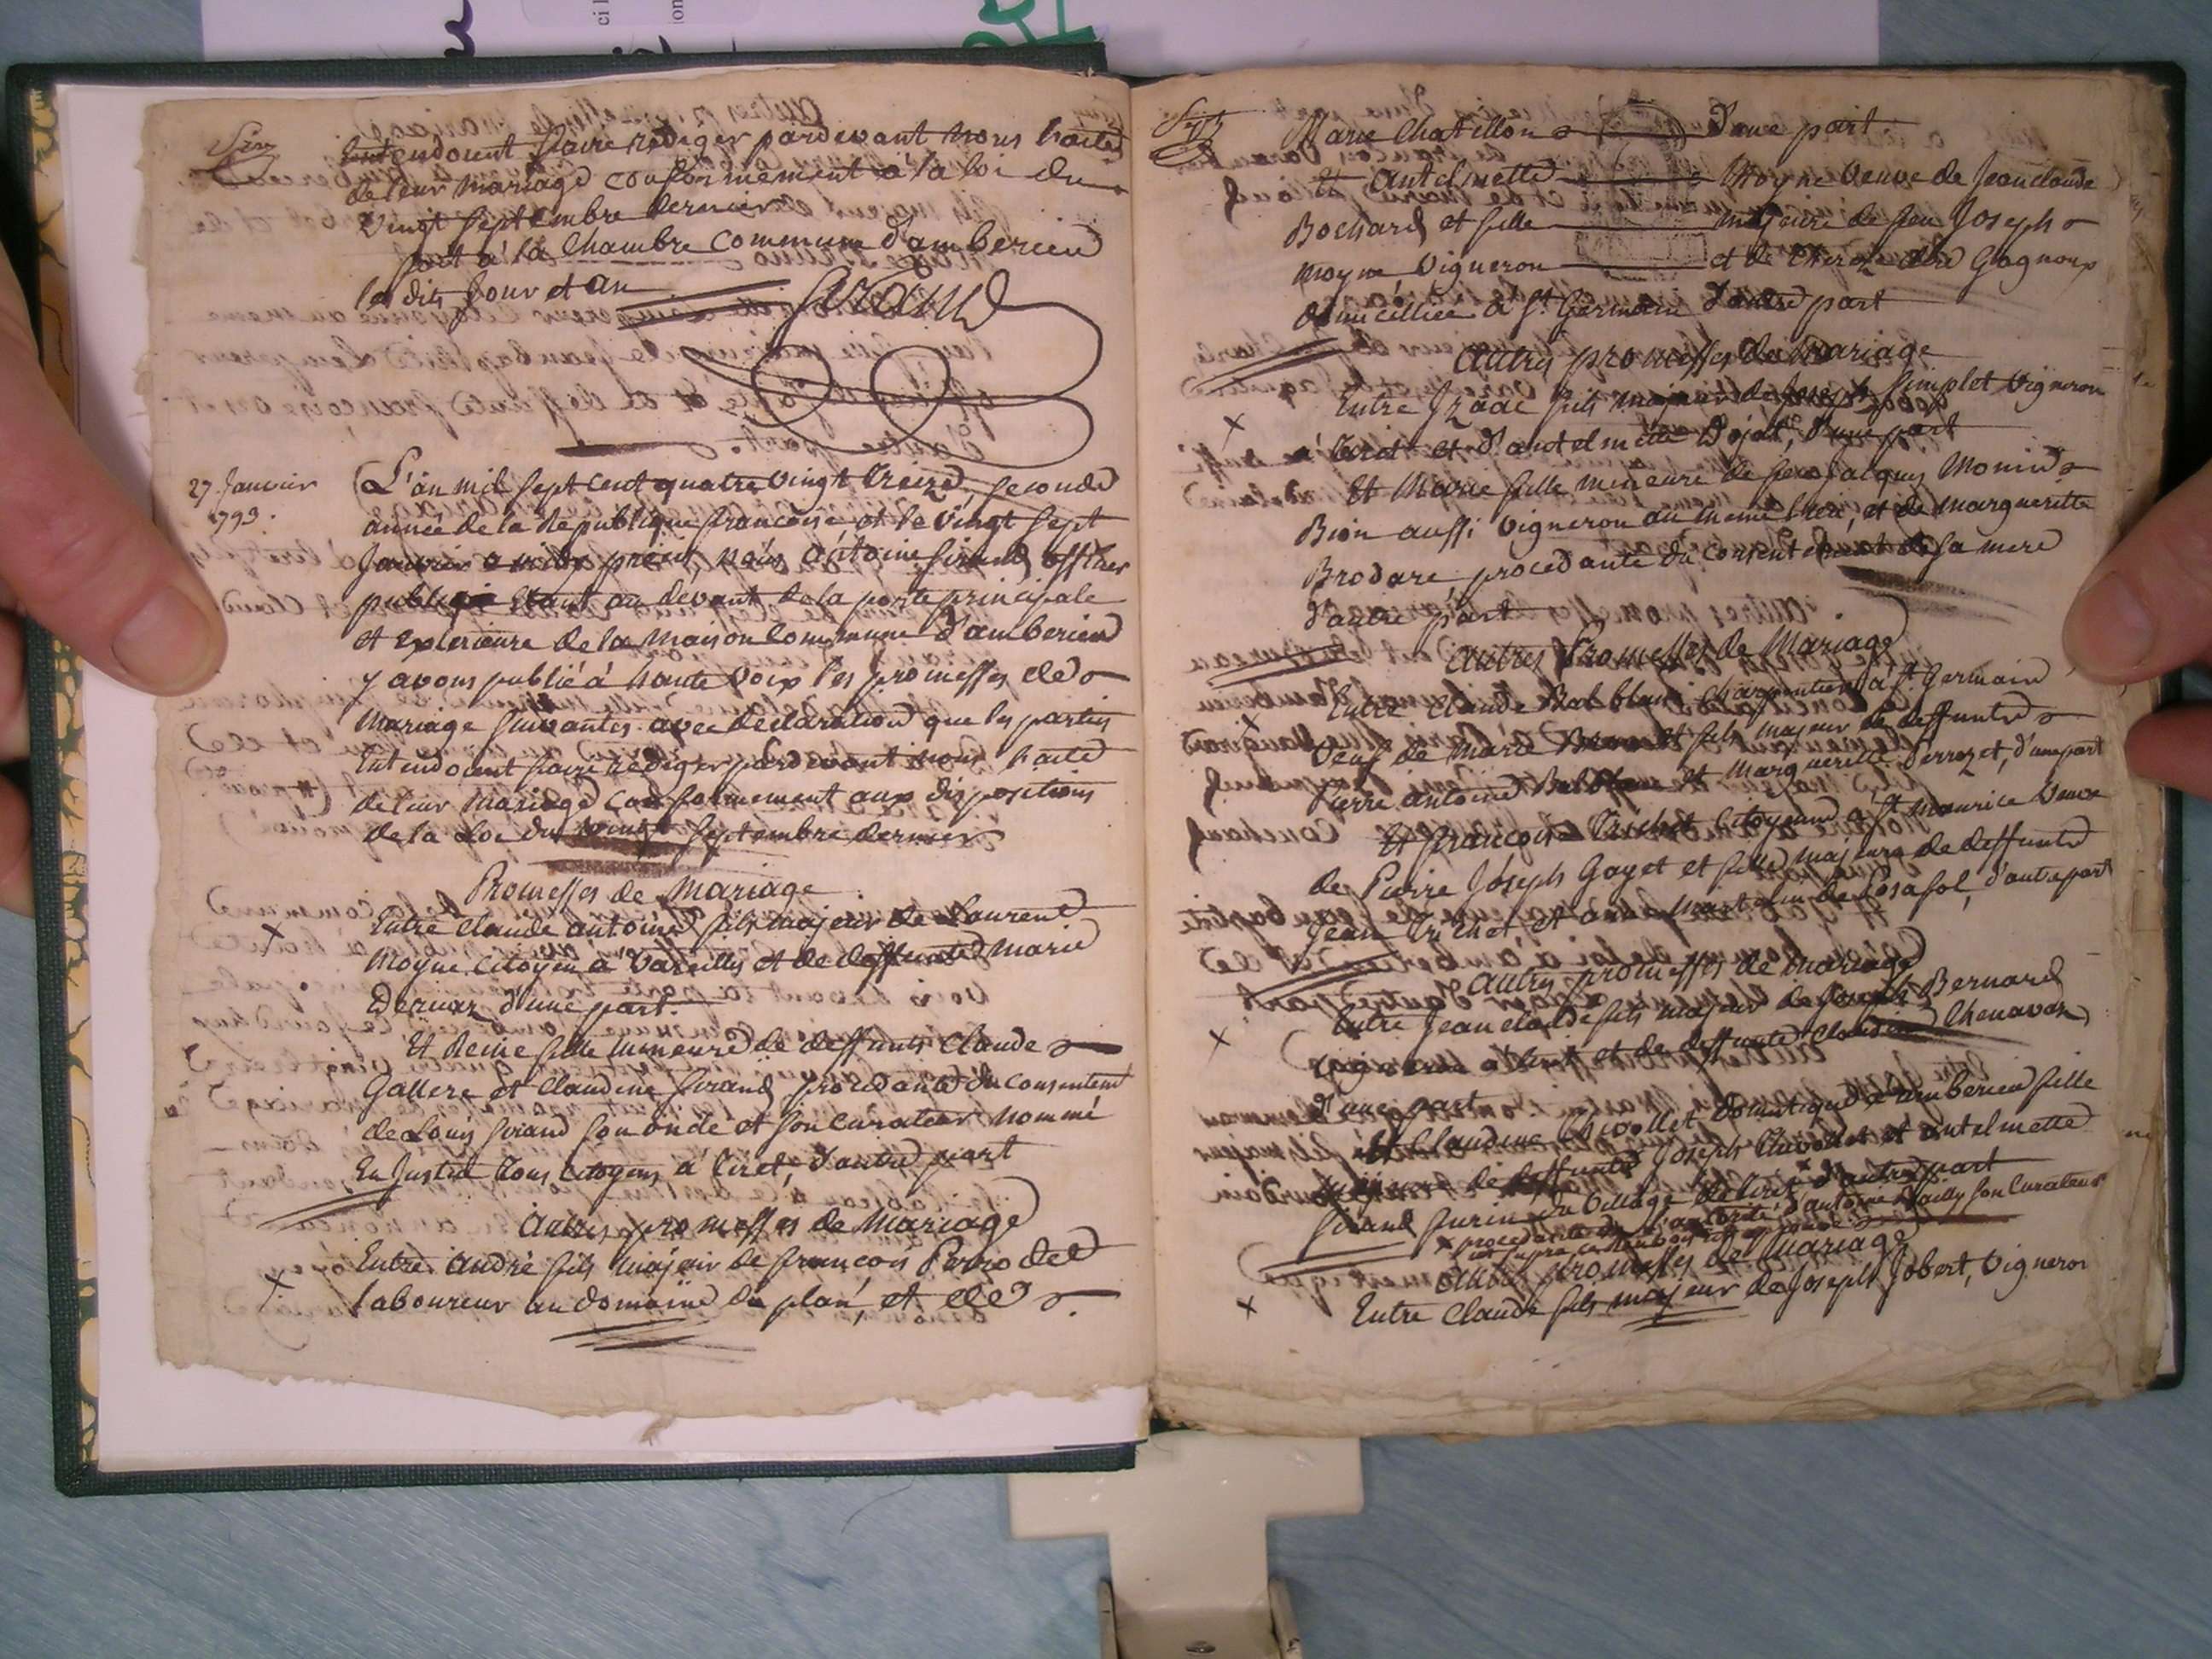 Entendoient faire rediger pardevant nous traité
de leur mariage conformement à la loi du
vingt septembre dernier
fait à la Chambre Commune d'amberieu
les dits jour et an
Sirand
27. Janvier
1793.
L'an mil sept cent quatre vingt treize, seconde
année de la Republique francoise et le vingt sept
Janvier nous antoine Sirand officier
publique Etant au devant de la porte principale
et Exterieure de la maison Commune d'amberieu
y avons publié à haute voix les promesses de
Mariage suivantes avec declaration que les parties
Entendoient faire rediger pardevant nous traité
de leur mariage conformement aux dispositions
de la Loi du vingt septembre dernier
Promesses de Mariage
Entre Claude antoine fils majeur de Laurent
Moyne Citoyen à Vareilles et de deffunte Marie
d'une part.
Et Reine fille mineure de deffunts Claude
Gallere et Claudine Sirand procedante du consentemt
de Louis Sirand son oncle et son Curateur nommé
En Justice tous Citoyens à Tiret, d'autre part
Autres promesses de Mariage
Entre André fils majeur de françois Perrodet
laboureur au domaine du plan, et de
Marie Chatillon d'une part.
Et Antelmette Moyne veuve de Jean claude
Bochard et fille majeure de feu Joseph
Moyne Vigneron et de Gagnoux
domicilliée à St. Germain d'autre part
Autres promesses de Mariage
Entre Izaac fils majeur de Joseph Simplet Vigneron
à Tiret et d'antelmette Dojat, d'une part
Et Marie fille mineure de feu Jacques Monin
Bion aussi Vigneron au même lieu, et de Margueritte
Brodare procedante du consentement de sa mere
d'autre part
Autres Promesses de Mariage
Entre Claude Bal blanc Charpentier à St. Germain
Veuf de Marie et fils majeur de deffunts
Pierre antoine Bal blanc et Marguerite Perrozet, d'une part
Et françoise Trichet Citoyenne à St. Maurice veuve
de Pierre Joseph Gayet et fille majeure de deffunts
Jean Trichet et anne Martelin de Posafol, d'autre part
Autres promesses de Mariage
Entre Jean claude fils majeur de Joseph Bernard
vigneron à Tiret et de deffunte Claudine Chenavas
d'une part
Et Claudine Chivollet domestique à amberieu fille
mineure de deffunts Joseph Chivollet et antelmette
Sirand Surin du Village de Tiret d'autre part
procedante de l'autorité d'antoine Vailly son Curateur
Autres promesses de Mariage
Entre Claude fils majeur de Joseph Jobert, Vigneron